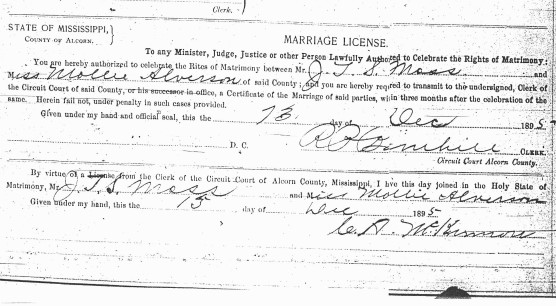 Clerk.
STATE OF MISSISSIPPI,
COUNTY OF ALCORN.
MARRIAGE LICENSE.
To any Minister, Judge, Justice or other Person Lawfully Authorized to Celebrate the Rights of Matrimony:
You are hereby authorized to celebrate the Rites of Matrimony between Mr. J. T. S. Moss and
Miss Mollie Alverson of said County; and you are hereby required to transmit to the undersigned, Clerk of
the Circuit Court of said County, or his successor in office, a Certificate of the Marriage of said parties, within three months after the celebration of the
same. Herein fail not, under penalty in such cases provided.
Given under my hand and official seal, this the 13 day of Dec 1895
CLERK.
D. C.
Circuit Court Alcorn County.
By virtue of a License from the Clerk of the Circuit Court of Alcorn County, Mississippi, I have this day joined in the Holy State of
Matrimony, Mr. J. T. S. Moss and Miss Mollie Alverson
Given under my hand, this the 15 day of Dec 1895